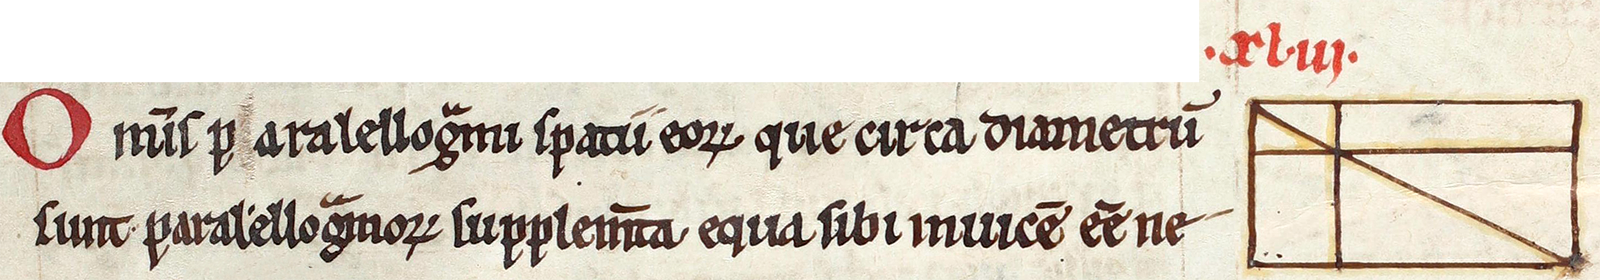 .xl.iij.
Om̅is p aralellog̅mi spatii eoꝝ que circa diametrū
sunt paralellog̅moꝝ supplem̅ta equa sibi inuicē eē ne-